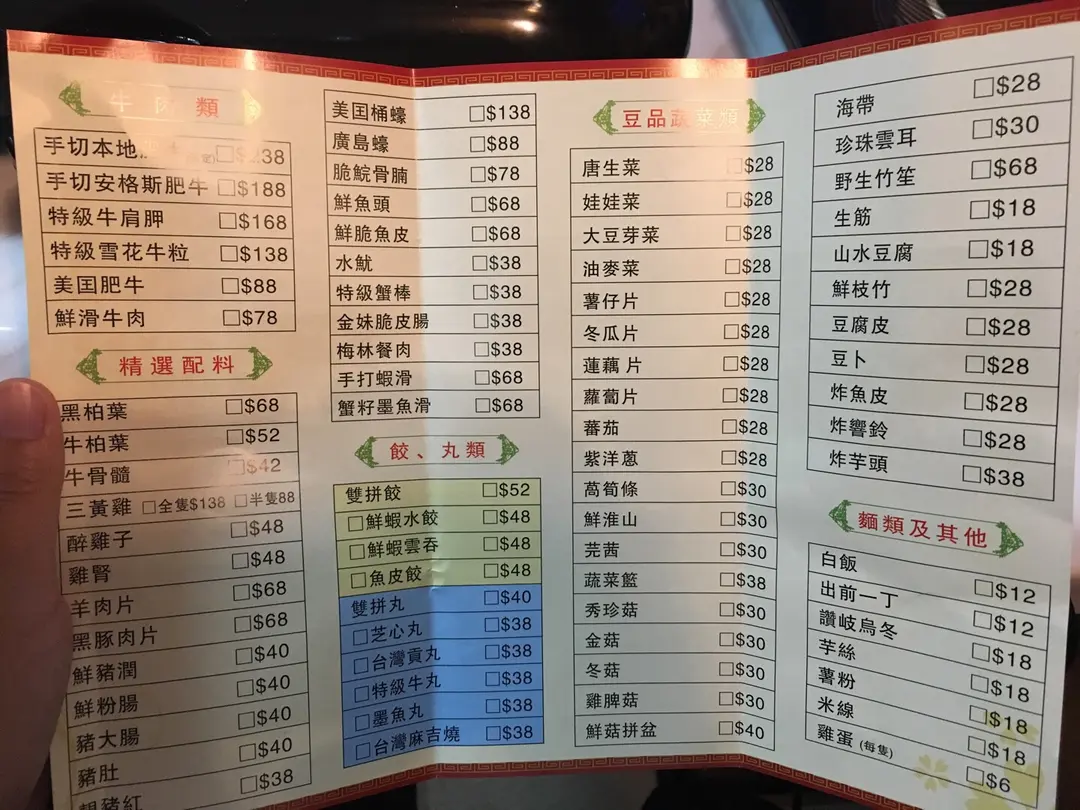 牛肉類
手切本地肥牛 □$238
手切安格斯肥牛 □$188
特級牛肩胛 □$168
特級雪花牛粒 □$138
美国肥牛 □$88
鮮滑牛肉 □$78
精選配料
黑柏葉 □$68
牛柏葉 □$52
牛骨髓 □$42
三黃雞 □全隻$138 □半隻88
醉雞子 □$48
雞腎 □$48
羊肉片 □$68
黑豚肉片 □$68
鮮豬潤 □$40
鮮粉腸 □$40
豬大腸 □$40
豬肚 □$40
豬紅 □$38
美国桶蠔 □$138
廣島蠔 □$88
脆鯇骨腩 □$78
鮮魚頭 □$68
鮮脆魚皮 □$68
水魷 □$38
特級蟹棒 □$38
金妹脆皮腸 □$38
梅林餐肉 □$38
手打蝦滑 □$68
蟹籽墨魚滑 □$68
餃、丸類
雙拼餃 □$52
□鮮蝦水餃 □$48
□鮮蝦雲吞 □$48
□魚皮餃 □$48
雙拼丸 □$40
□芝心丸 □$38
□台灣貢丸 □$38
□特級牛丸 □$38
□墨魚丸 □$38
□台灣麻吉燒 □$38
豆品蔬菜類
唐生菜 □$28
娃娃菜 □$28
大豆芽菜 □$28
油麥菜 □$28
薯仔片 □$28
冬瓜片 □$28
蓮藕片 □$28
蘿蔔片 □$28
蕃茄 □$28
紫洋蔥 □$28
萵筍條 □$30
鮮淮山 □$30
芫茜 □$30
蔬菜籃 □$38
秀珍菇 □$30
金菇 □$30
冬菇 □$30
雞脾菇 □$30
鮮菇拼盆 □$40
海帶 □$28
珍珠雲耳 □$30
野生竹笙 □$68
生筋 □$18
山水豆腐 □$18
鮮枝竹 □$28
豆腐皮 □$28
豆卜 □$28
炸魚皮 □$28
炸響鈴 □$28
炸芋頭 □$38
麵類及其他
白飯 □$12
出前一丁 □$12
讚岐烏冬 □$18
芋絲 □$18
薯粉 □$18
米線 □$18
雞蛋(每隻) □$6